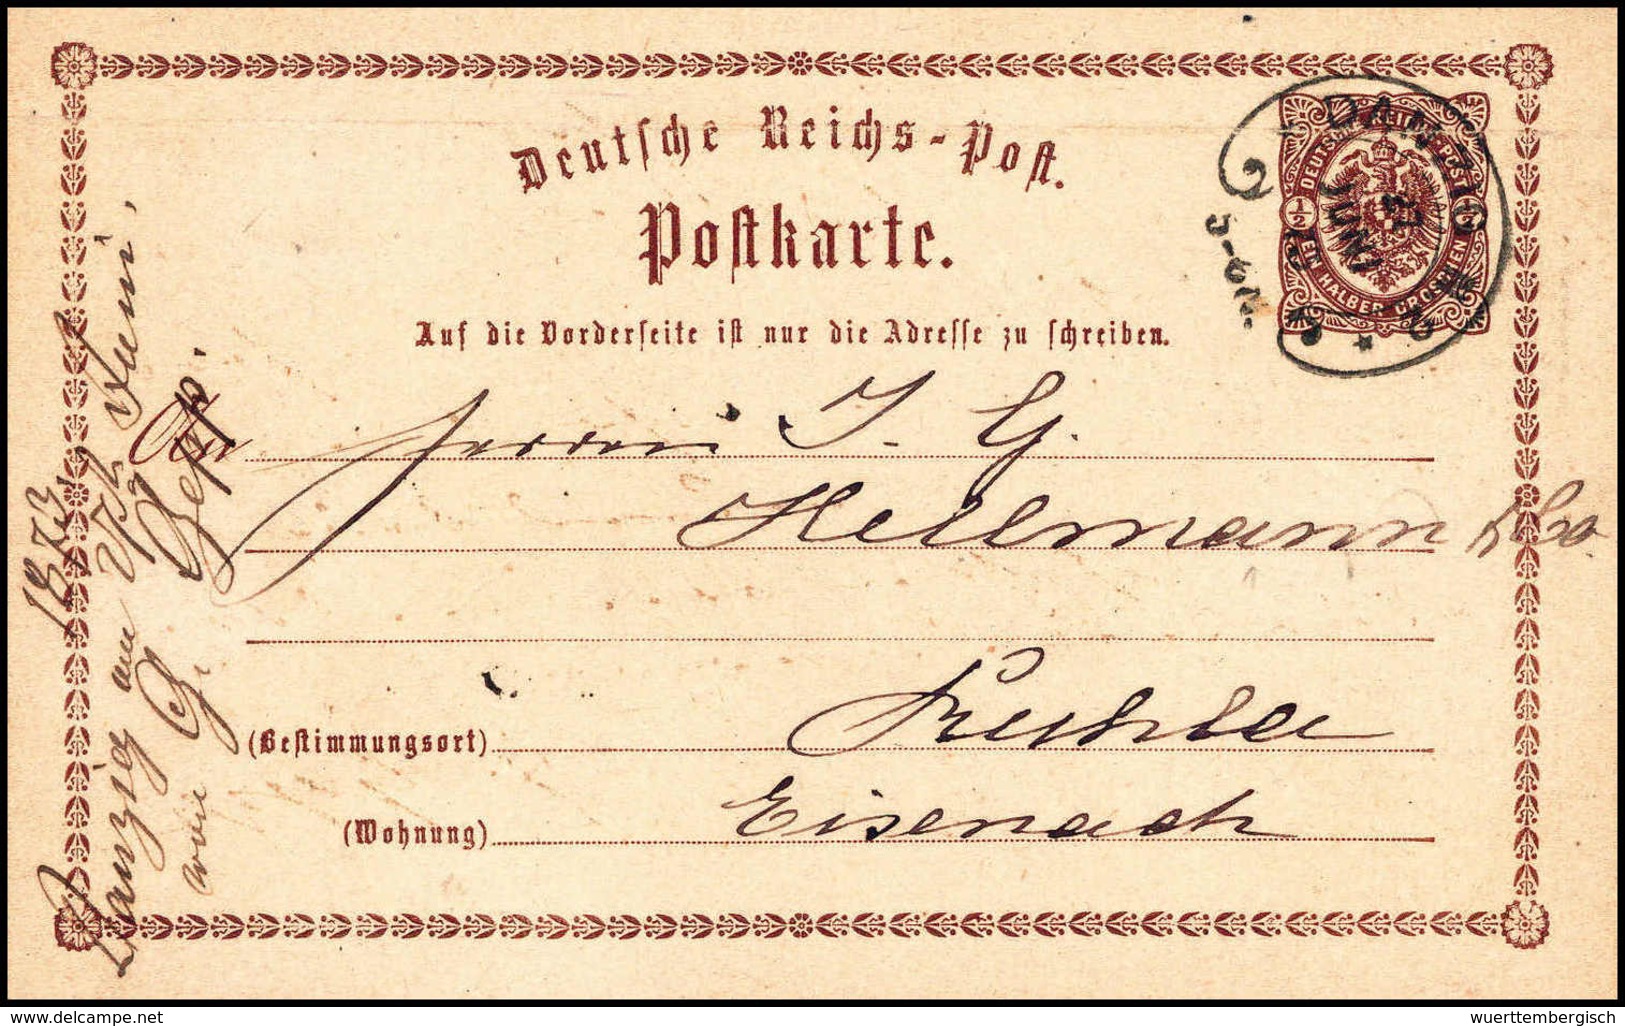 Deutsche Reichs-Post.
Postkarte.
Auf die Vorderseite ist nur die Adresse zu schreiben.
DEUTSCHE REICHS-POST
½ ½
EIN HALBER GROSCHEN
DANZIG
JUNI
5-6 N.
An Herren J. G.
Hellmann & Co
Ruhla
(Bestimmungsort)
Eisenach
(Wohnung)
Danzig am Juni,
1873
delcampe.net
wuerttembergisch